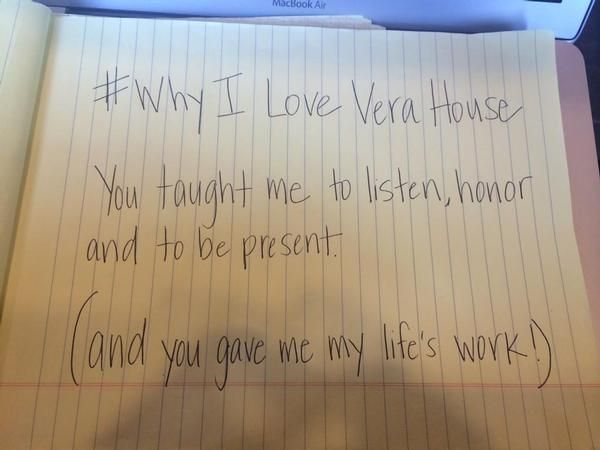 MacBook Air
#Why I Love Vera House
You taught me to listen, honor
and to be present.
(and you gave me my life's work!)